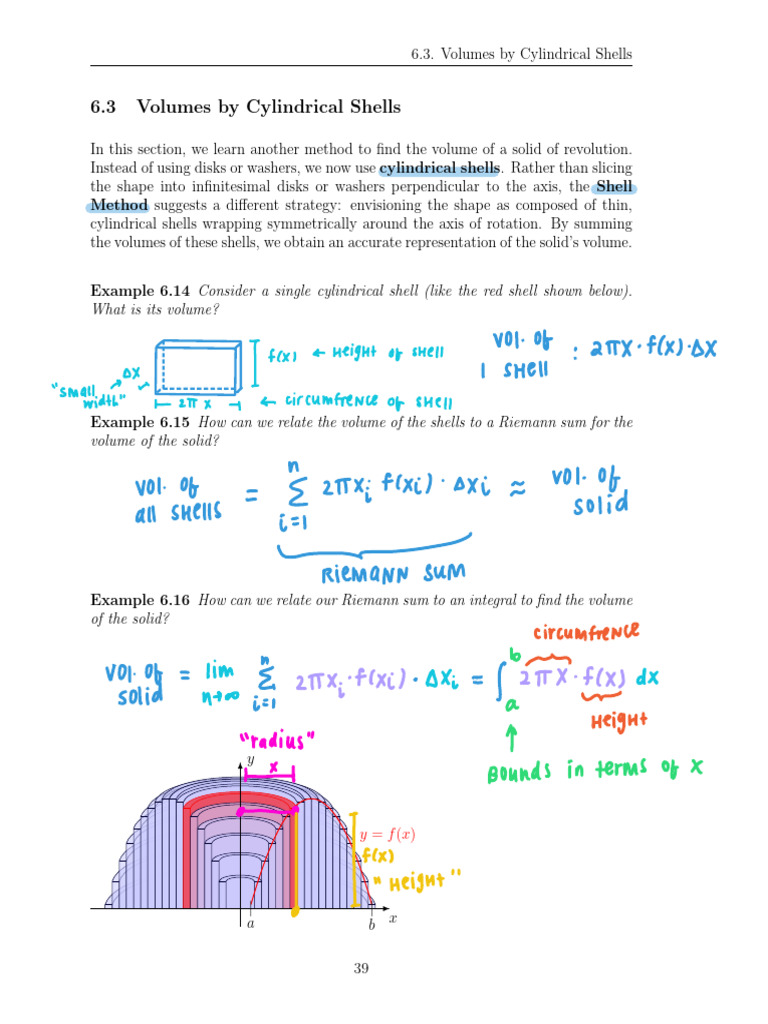 6.3. Volumes by Cylindrical Shells
6.3 Volumes by Cylindrical Shells
In this section, we learn another method to find the volume of a solid of revolution.
Instead of using disks or washers, we now use cylindrical shells. Rather than slicing
the shape into infinitesimal disks or washers perpendicular to the axis, the Shell
Method suggests a different strategy: envisioning the shape as composed of thin,
cylindrical shells wrapping symmetrically around the axis of rotation. By summing
the volumes of these shells, we obtain an accurate representation of the solid's volume.
Example 6.14 Consider a single cylindrical shell (like the red shell shown below).
What is its volume?
f(x) ← Height of shell
vol. of
1 shell : 2πx · f(x) · Δx
Δx
"small
width"
2π x ← circumfrence of shell
Example 6.15 How can we relate the volume of the shells to a Riemann sum for the
volume of the solid?
vol. of
all shells = n Σ i=1 2πxi f(xi) · Δxi ≈ vol. of
solid
Riemann sum
Example 6.16 How can we relate our Riemann sum to an integral to find the volume
of the solid?
circumfrence
vol. of
solid = lim n→∞ n Σ i=1 2πxi · f(xi) · Δxi = ∫ b a 2πx · f(x) dx
Height
Bounds in terms of x
"radius"
y
x
y = f(x)
f(x)
"Height"
a
b
x
39